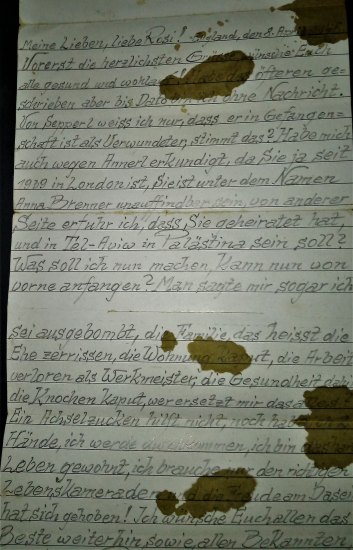 Meine Lieben, liebe Resi! England, den 8.
Vorerst die herzlichsten Grüsse, wünsche Euch
alle gesund und wohlauf! Habe des öfteren ge-
schrieben aber bis Dato bin ich ohne Nachricht.
Von Pepperl weiss ich nur, dass er in Gefangen-
schaft ist als Verwundeter, stimmt das? Habe mich
auch wegen Annerl erkundigt, da Sie ja seit
in London ist, Sie ist unter dem Namen
Anna Brenner unauffindbar sein, von anderer
Seite erfuhr ich, dass Sie geheiratet hat,
und in Tel-Aviw in Palästina sein soll?
Was soll ich nun machen, Kann nun von
vorne anfangen? Man sagte mir sogar ich
sei ausgebombt, die Familie, das heisst die
Ehe zerrissen, die Wohnung kaput, die Arbeit
verloren als Werkmeister, die Gesundheit dahin
die Knochen kaput, wer ersetzt mir das
Ein Achselzucken hilft nicht, noch hab
Hände, ich werde durchkommen, ich bin
Leben gewohnt, ich brauche nur den richtigen
Lebenskameraden und die Freude am Dasein
hat sich gehoben! Ich wünsche Euch allen das
Beste weiterhin sowie allen Bekannten